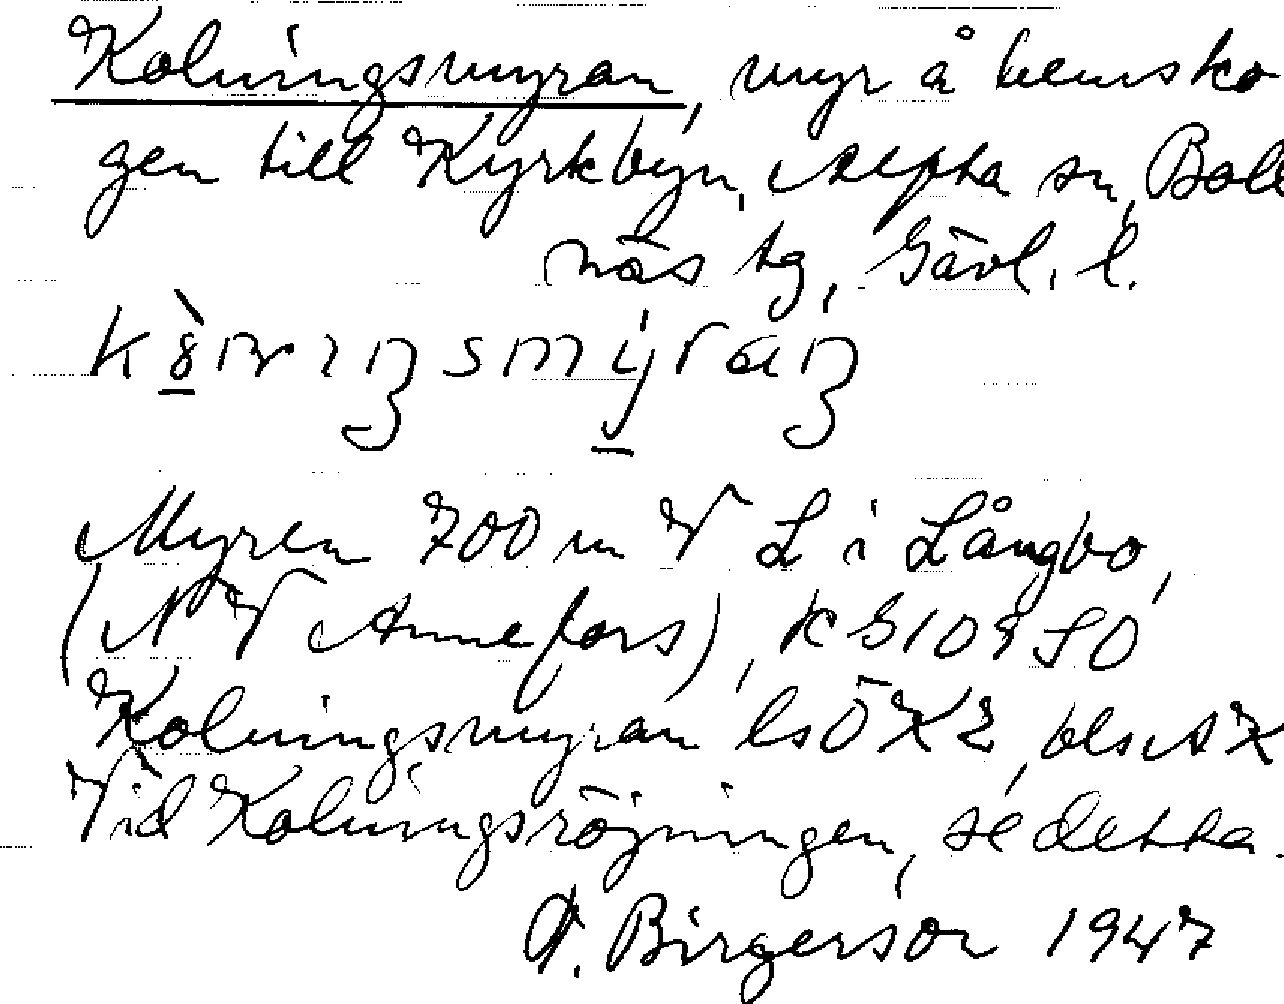 Kolningsmyran, myr å hemsko-
gen till Kyrkbyn, Alfta sn, Boll-
näs tg, Gävl. l.
Myren 700 m V L i Långbo,
(NV Annefors), K G10950
Kolningsmyran ls ÖK 2, bls AK
Vid Kolningsröjningen, se detta.
O. Birgerson 1947